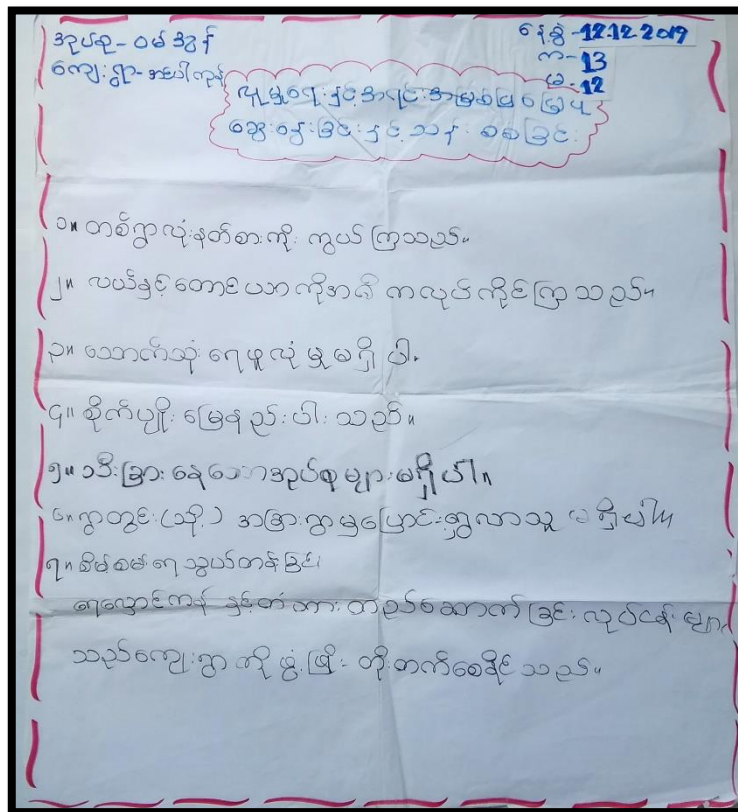 အုပ်စု - ဝမ်အွန်
နေ့စွဲ - 12.12.2019
ကျေးရွာ -
က - 13
မ - 12
လူမှုရေးနှင့်အရင်းအမြစ်မြေပုံ
ဆွေးနွေးခြင်းနှင့်သန်းစစ်ခြင်း
၁။ တစ်ရွာလုံးနတ်စားကိုးကွယ်ကြသည်။
၂။ လယ်နှင့်တောင်ယာကိုအဓိကလုပ်ကိုင်ကြသည်။
၃။ သောက်သုံးရေဖူလုံမှုမရှိပါ။
၄။ စိုက်ပျိုးမြေနည်းပါးသည်။
၅။ သီးခြားနေသောအုပ်စုများမရှိပါ။
၆။ ရွာတွင်း (သို့) အခြားရွာမှပြောင်းရွှေ့လာသူမရှိပါ။
၇။ စိမ်စမ်းရေသွယ်တန်ခြင်း၊
ရေလှောင်ကန်နှင့်တံတားတည်ဆောက်ခြင်းလုပ်ငန်းများ
သည်ကျေးရွာကိုဖွံ့ဖြိုးတိုးတက်စေနိုင်သည်။